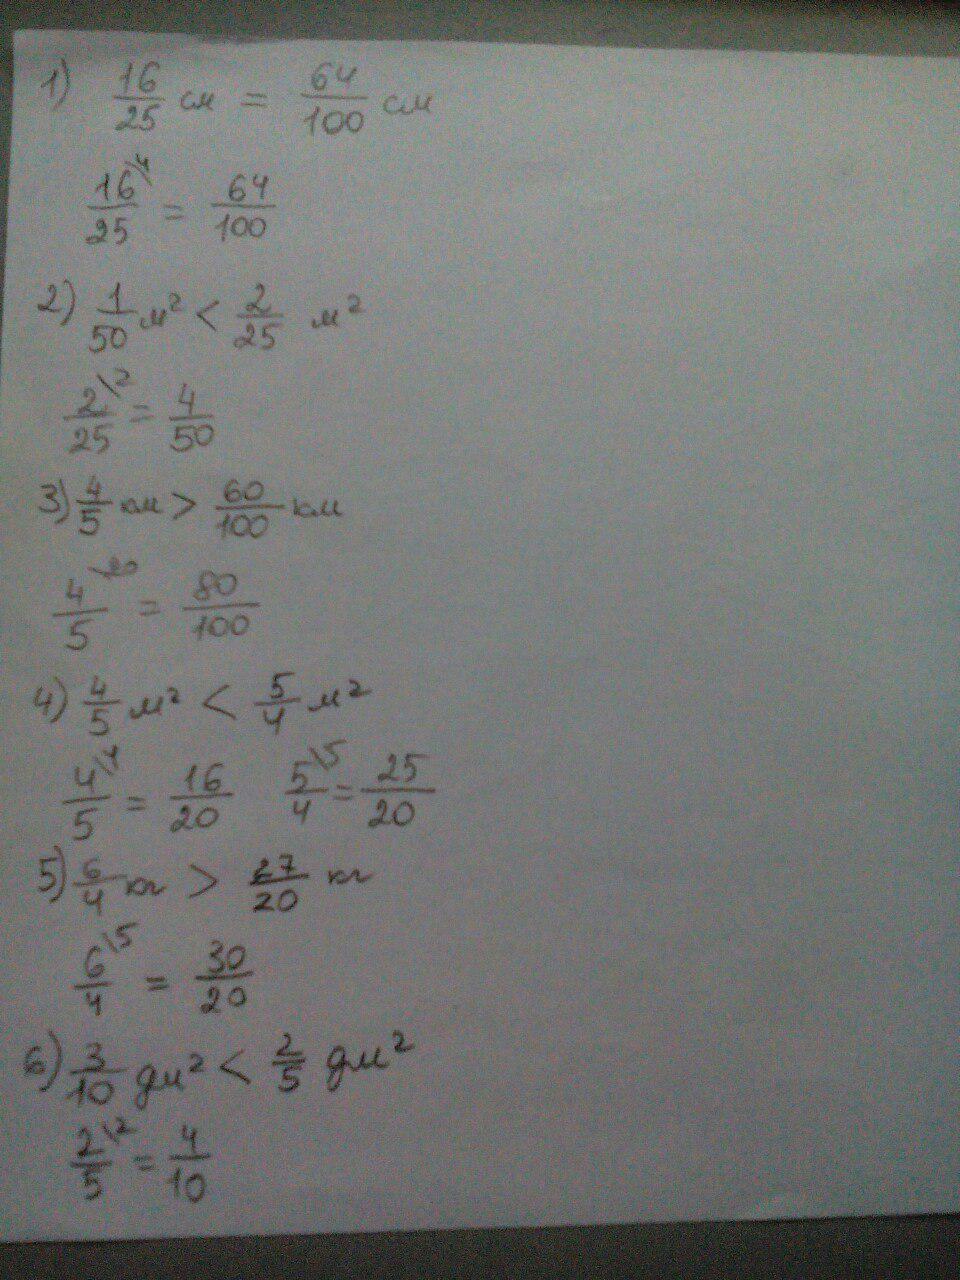 1) 16/25 см = 64/100 см
16\4/25 = 64/100
2) 1/50 м² < 2/25 м²
2\2/25 = 4/50
3) 4/5 км > 60/100 км
4\20/5 = 80/100
4) 4/5 м² < 5/4 м²
4\4/5 = 16/20 5\5/4 = 25/20
5) 6/4 кг > 27/20 кг
6\5/4 = 30/20
6) 3/10 дм² < 2/5 дм²
2\2/5 = 4/10